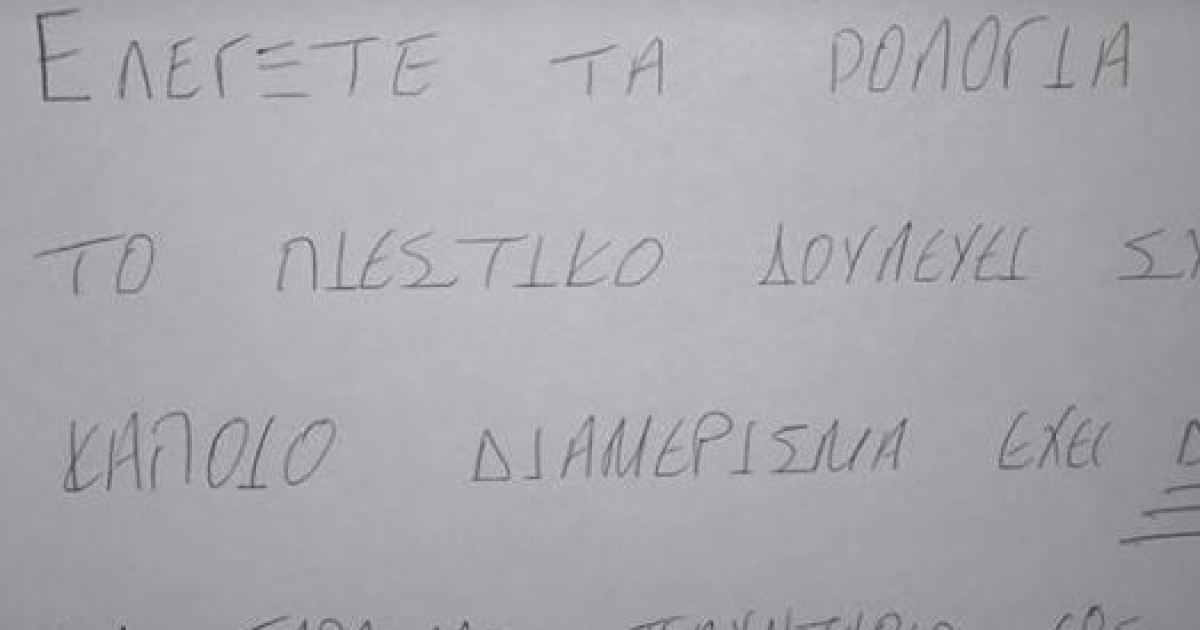 ΕΛΕΓΞΤΕ ΤΑ ΡΟΛΟΓΙΑ
ΤΟ ΠΙΕΣΤΙΚΟ ΔΟΥΛΕΥΕΙ
ΚΑΠΟΙΟ ΔΙΑΜΕΡΙΣΜΑ ΕΧΕΙ